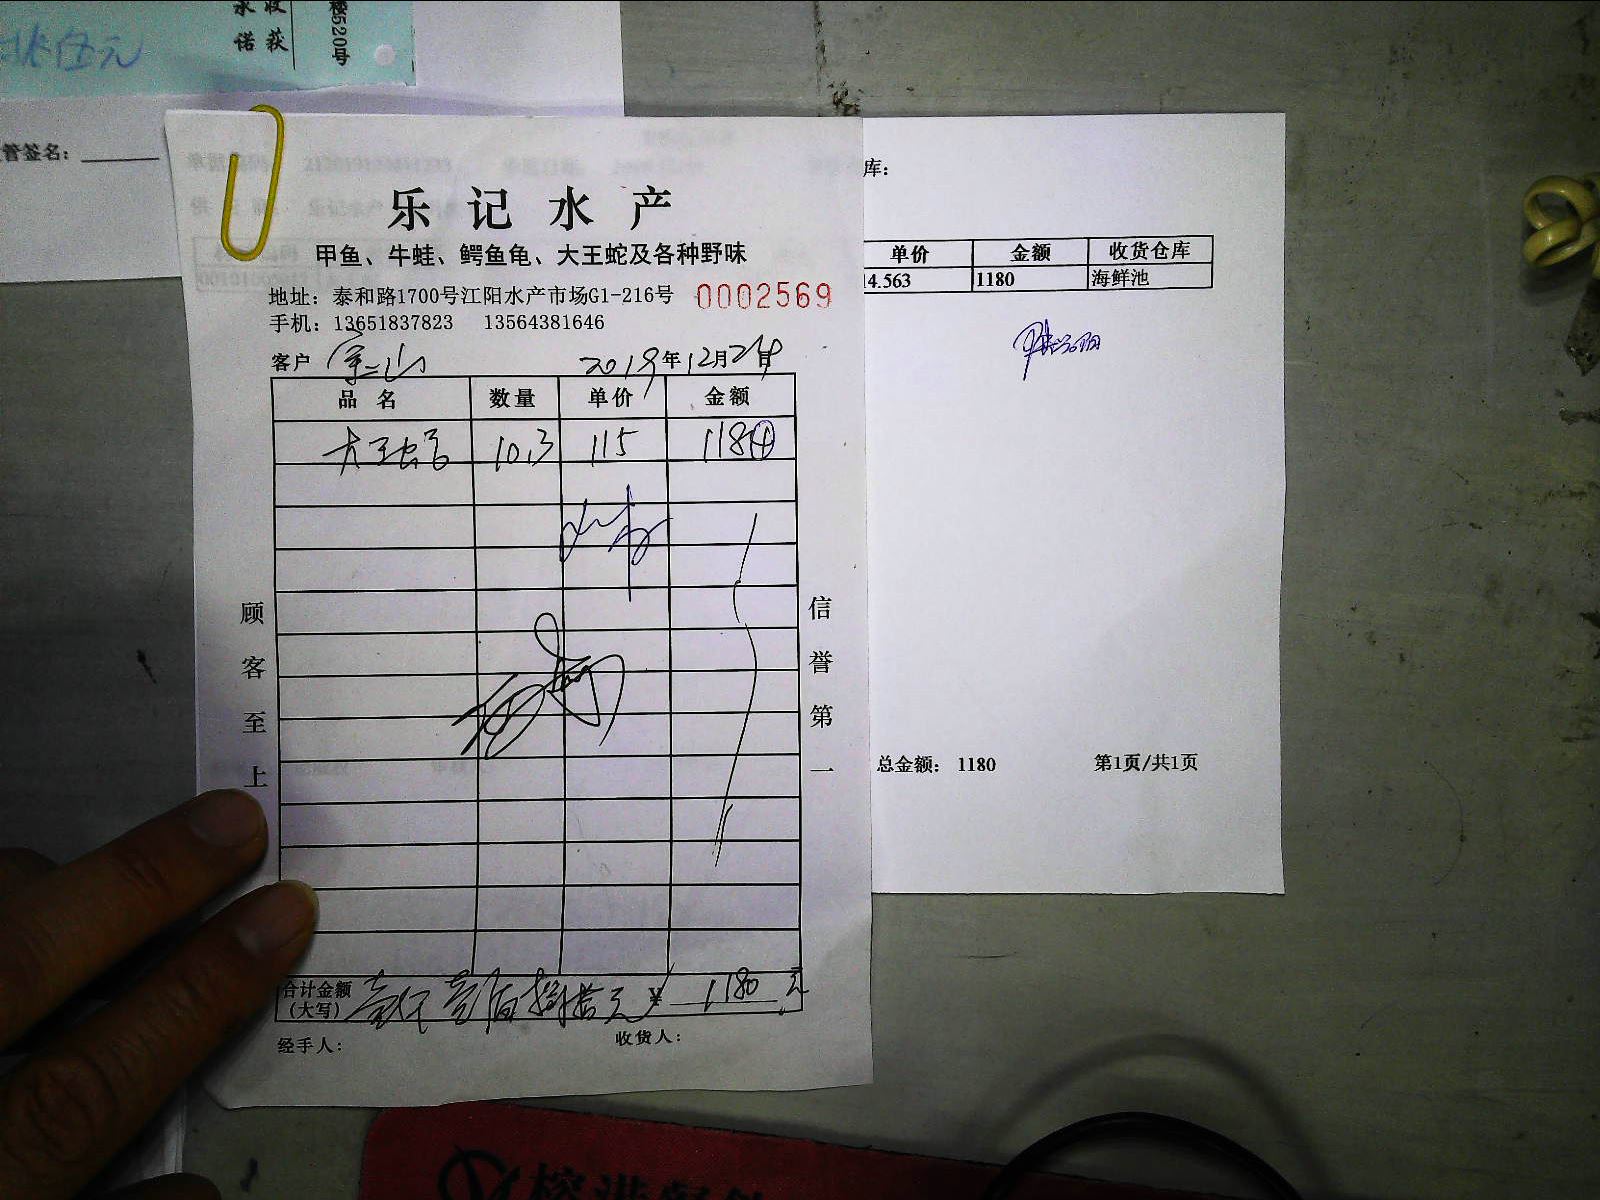 承 收
诺 获
楼520号
伍元
管签名：
乐记水产
甲鱼、牛蛙、鳄鱼龟、大王蛇及各种野味
地址：泰和路1700号江阳水产市场G1-216号 0002569
手机：13651837823 13564381646
客户 宝山 2019年12月24日
品名 数量 单价 金额
大王蛇 10.3 115 1184
顾客至上
信誉第一
合计金额（大写） 壹仟壹佰捌拾元 ¥ 1180 元
经手人： 收货人：
库：
单价 金额 收货仓库
14.563 1180 海鲜池
总金额： 1180 第1页/共1页